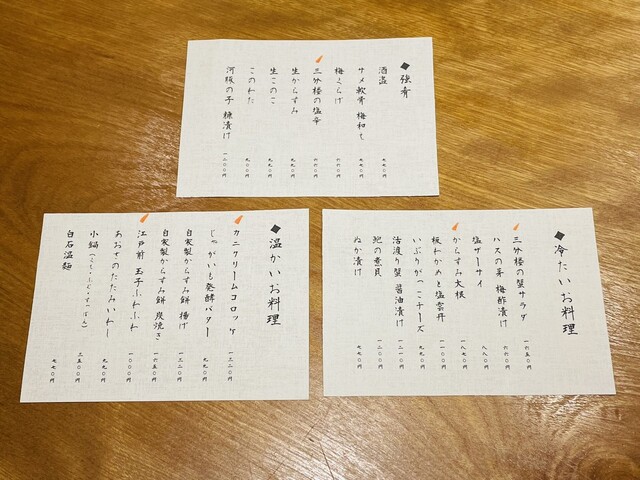 ◆強肴
酒盗 七七〇円
サメ軟骨 梅和え 七七〇円
梅くらげ 六六〇円
三分楼の塩辛 六六〇円
生からすみ 九九〇円
生このこ 九九〇円
このわた 九〇〇円
河豚の子 糠漬け 一二〇〇円
◆温かいお料理
カニクリームコロッケ 一三二〇円
じゃがいも発酵バター 九九〇円
自家製からすみ餅 揚げ 一三二〇円
自家製からすみ餅 炭焼き 一六五〇円
江戸前 玉子ふわふわ 一〇〇〇円
あおさのたたみいわし 九九〇円
小鍋
白石温麺 七七〇円
◆冷たいお料理
三分楼の蟹サラダ 一六五〇円
ハスの芽 梅酢漬け 六六〇円
塩ザーサイ 八八〇円
からすみ大根 一八七〇円
板わかめと塩雲丹 一一〇〇円
いぶりがっこチーズ 九九〇円
活渡り蟹 醤油漬け 一二一〇円
鮑の煮貝 一二〇〇円
ぬか漬け